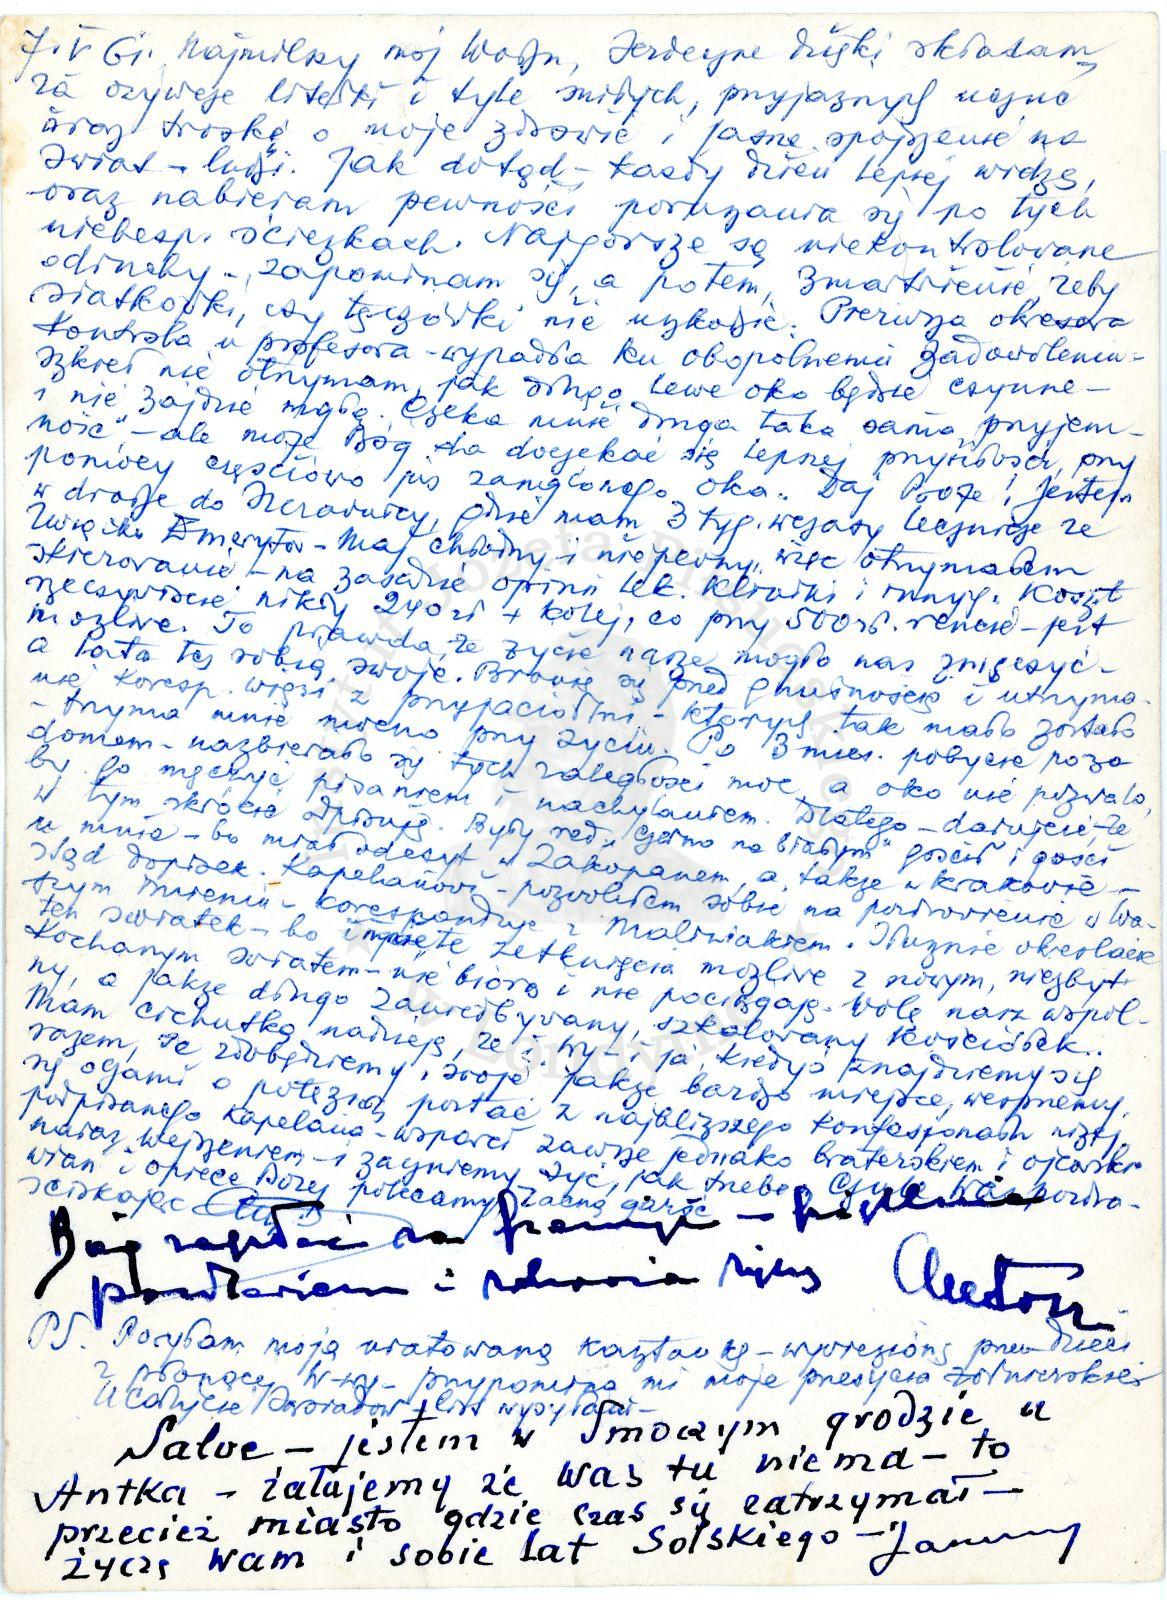 7.V 61. Najmilszy mój Wodzu, serdeczne dzięki składam
za ożywcze literki i tyle miłych, przyjaznych uczuć
oraz troskę o moje zdrowie i jasne spojrzenie na
świat – ludzi. Jak dotąd – każdy dzień lepiej widzę,
oraz nabieram pewności poruszania się po tych
niebezp. ścieżkach. Najgorsze są niekontrolowane
odruchy – zapominam się, a potem zmartwienie, żeby
siatkówki, czy tęczówki nie uszkodzić. Pierwsza okresowa
kontrola u profesora – wypadła ku obopólnemu zadowoleniu –
szkieł nie otrzymam, jak długo lewe oko będzie czynne –
i nie zajdzie mgłą. Czeka mnie druga taka sama „przyjem-
ność” – ale może Bóg da doczekać się lepszej przyszłości, przy
pomocy częściowo już zamglonego oka. Daj Boże! Jestem
w drodze do Szczawnicy, gdzie mam 3 tyg. wczasy lecznicze ze
Związku Emerytów – Maj chłodny i niepewny, więc otrzymałem
skierowanie – na zasadzie opinii lek. kliniki i innych. Koszt
rzeczywiście nikły 240 zł + kolej, co przy 500 zł. rencie – jest
możliwe. To prawda, że życie nasze mogło nas zniszczyć –
a lata też robią swoje. Bronię się przed gnuśnością i utrzyma-
nie koresp. więzi z przyjaciółmi – których tak mało zostało
– trzyma mnie mocno przy życiu. Po 3 mies. pobycie poza
domem – nazbierało się tych zaległości moc, a oko nie pozwala,
by go męczyć pisaniem i nachylaniem. Dlatego – darujcie, że
w tym skrócie odpisuję. Były red. „Czarno na białym” gościł i gości
u mnie – bo miał odczyt w Zakopanem, a także w Krakowie –
stąd dopisek. Kapelanowi – pozwoliłem sobie na pozdrowienie w Wa-
szym imieniu – koresponduję z Maliniakiem. Słusznie określacie
ten światek – bo zetknięcia możliwe z nowym, niezbyt
kochanym światem – nie biorą i nie pociągają. Wolę nasz wspól-
ny, a jakże długo zaniedbywany, szkalowany Kościółek..
Mam cichutką nadzieję, że i Wy – i ja, kiedyś znajdziemy się
razem, że zdobędziemy swoje jakże bardzo miejsce, wespniemy
się oczami o potężną postać z najbliższego konfesjonału niżej
podpisanego Kapelana – wsparci zawsze jednako braterskiem i ojcowskim
naraz wejrzeniem – i zaczniemy żyć, jak trzeba. Czule Was pozdra-
wiam i opiece Bożej polecamy zacną garść
ściskając
Bóg zapłać za pamięć –
pozdrawiam i zdrowia życzę Antoni
PS. Posyłam moją uratowaną kartkę – wywiezioną przez dzieci
z płonącej W-wy – przypomina mi moje przeżycia żołnierskie
Salve – jestem w Smoczym grodzie u
Antka – żałujemy że Was tu niema – to
przecież miasto gdzie czas się zatrzymał –
życzę Wam i sobie lat Solskiego – Janusz